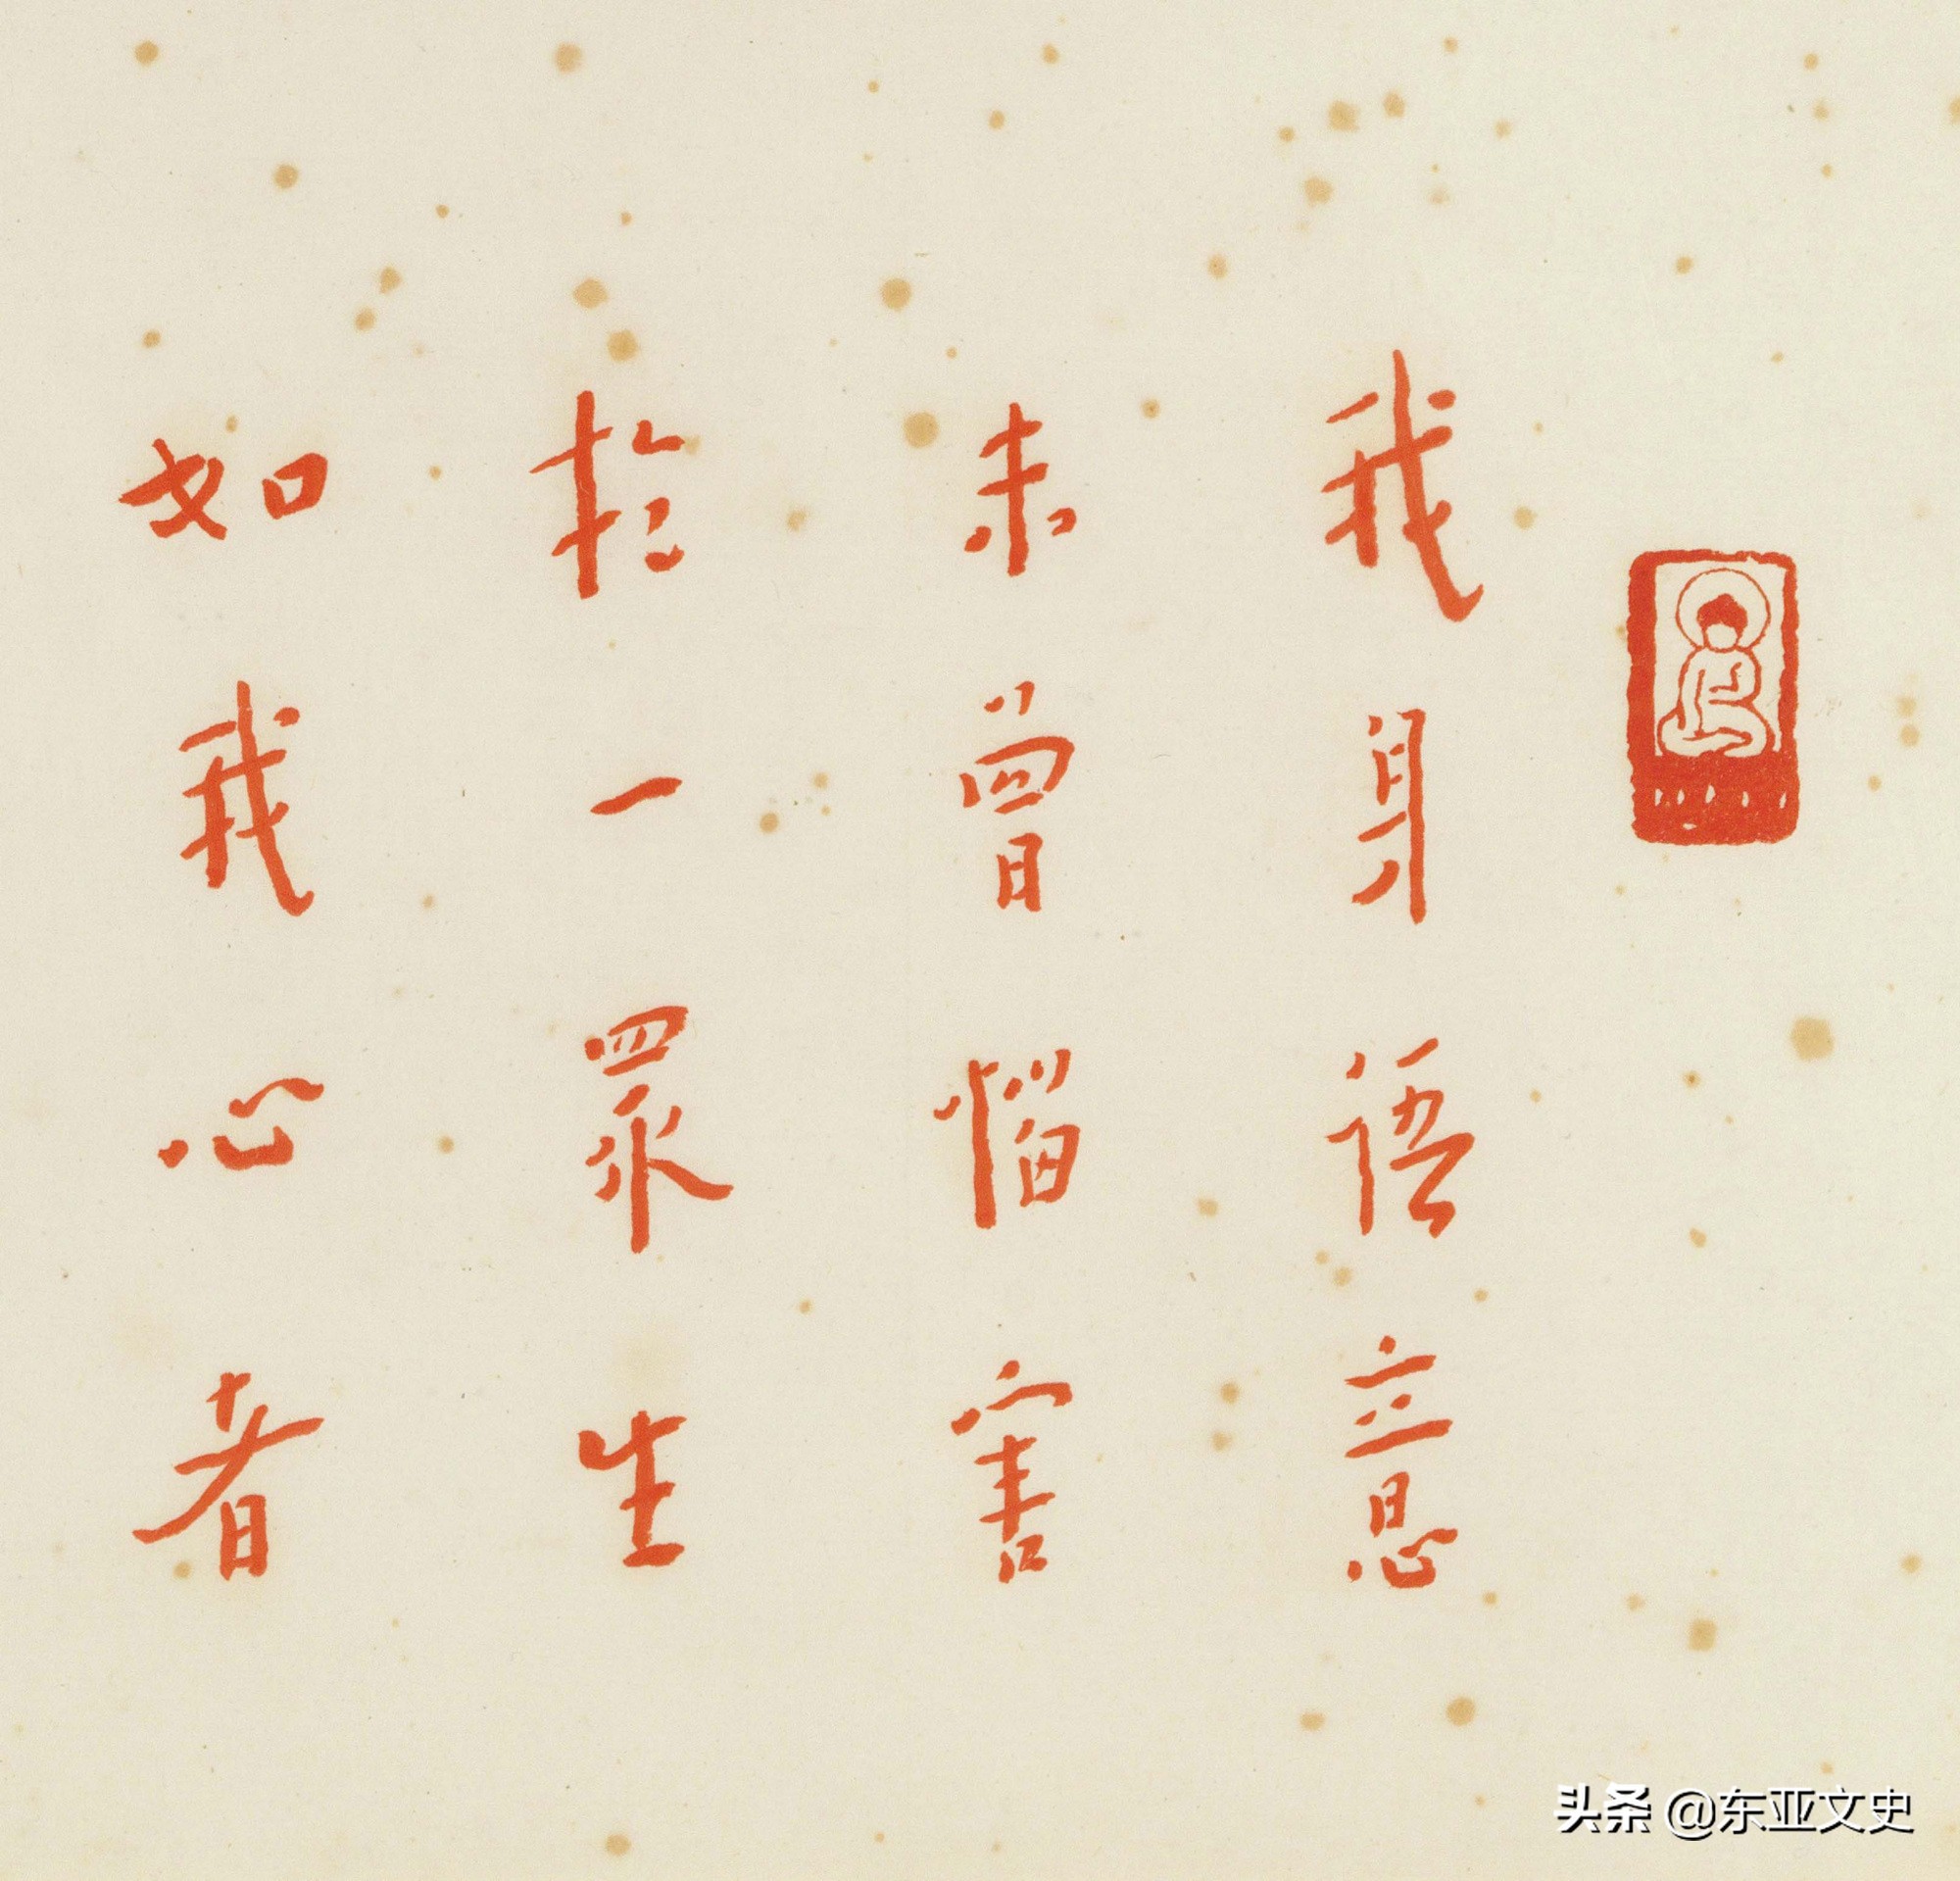 我身語意
未曾惱害
於一眾生
如我心者
头条 @东亚文史